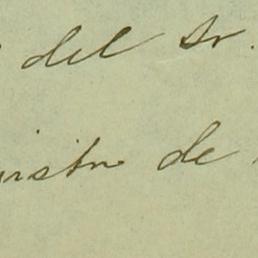 del Sr.
nistro de